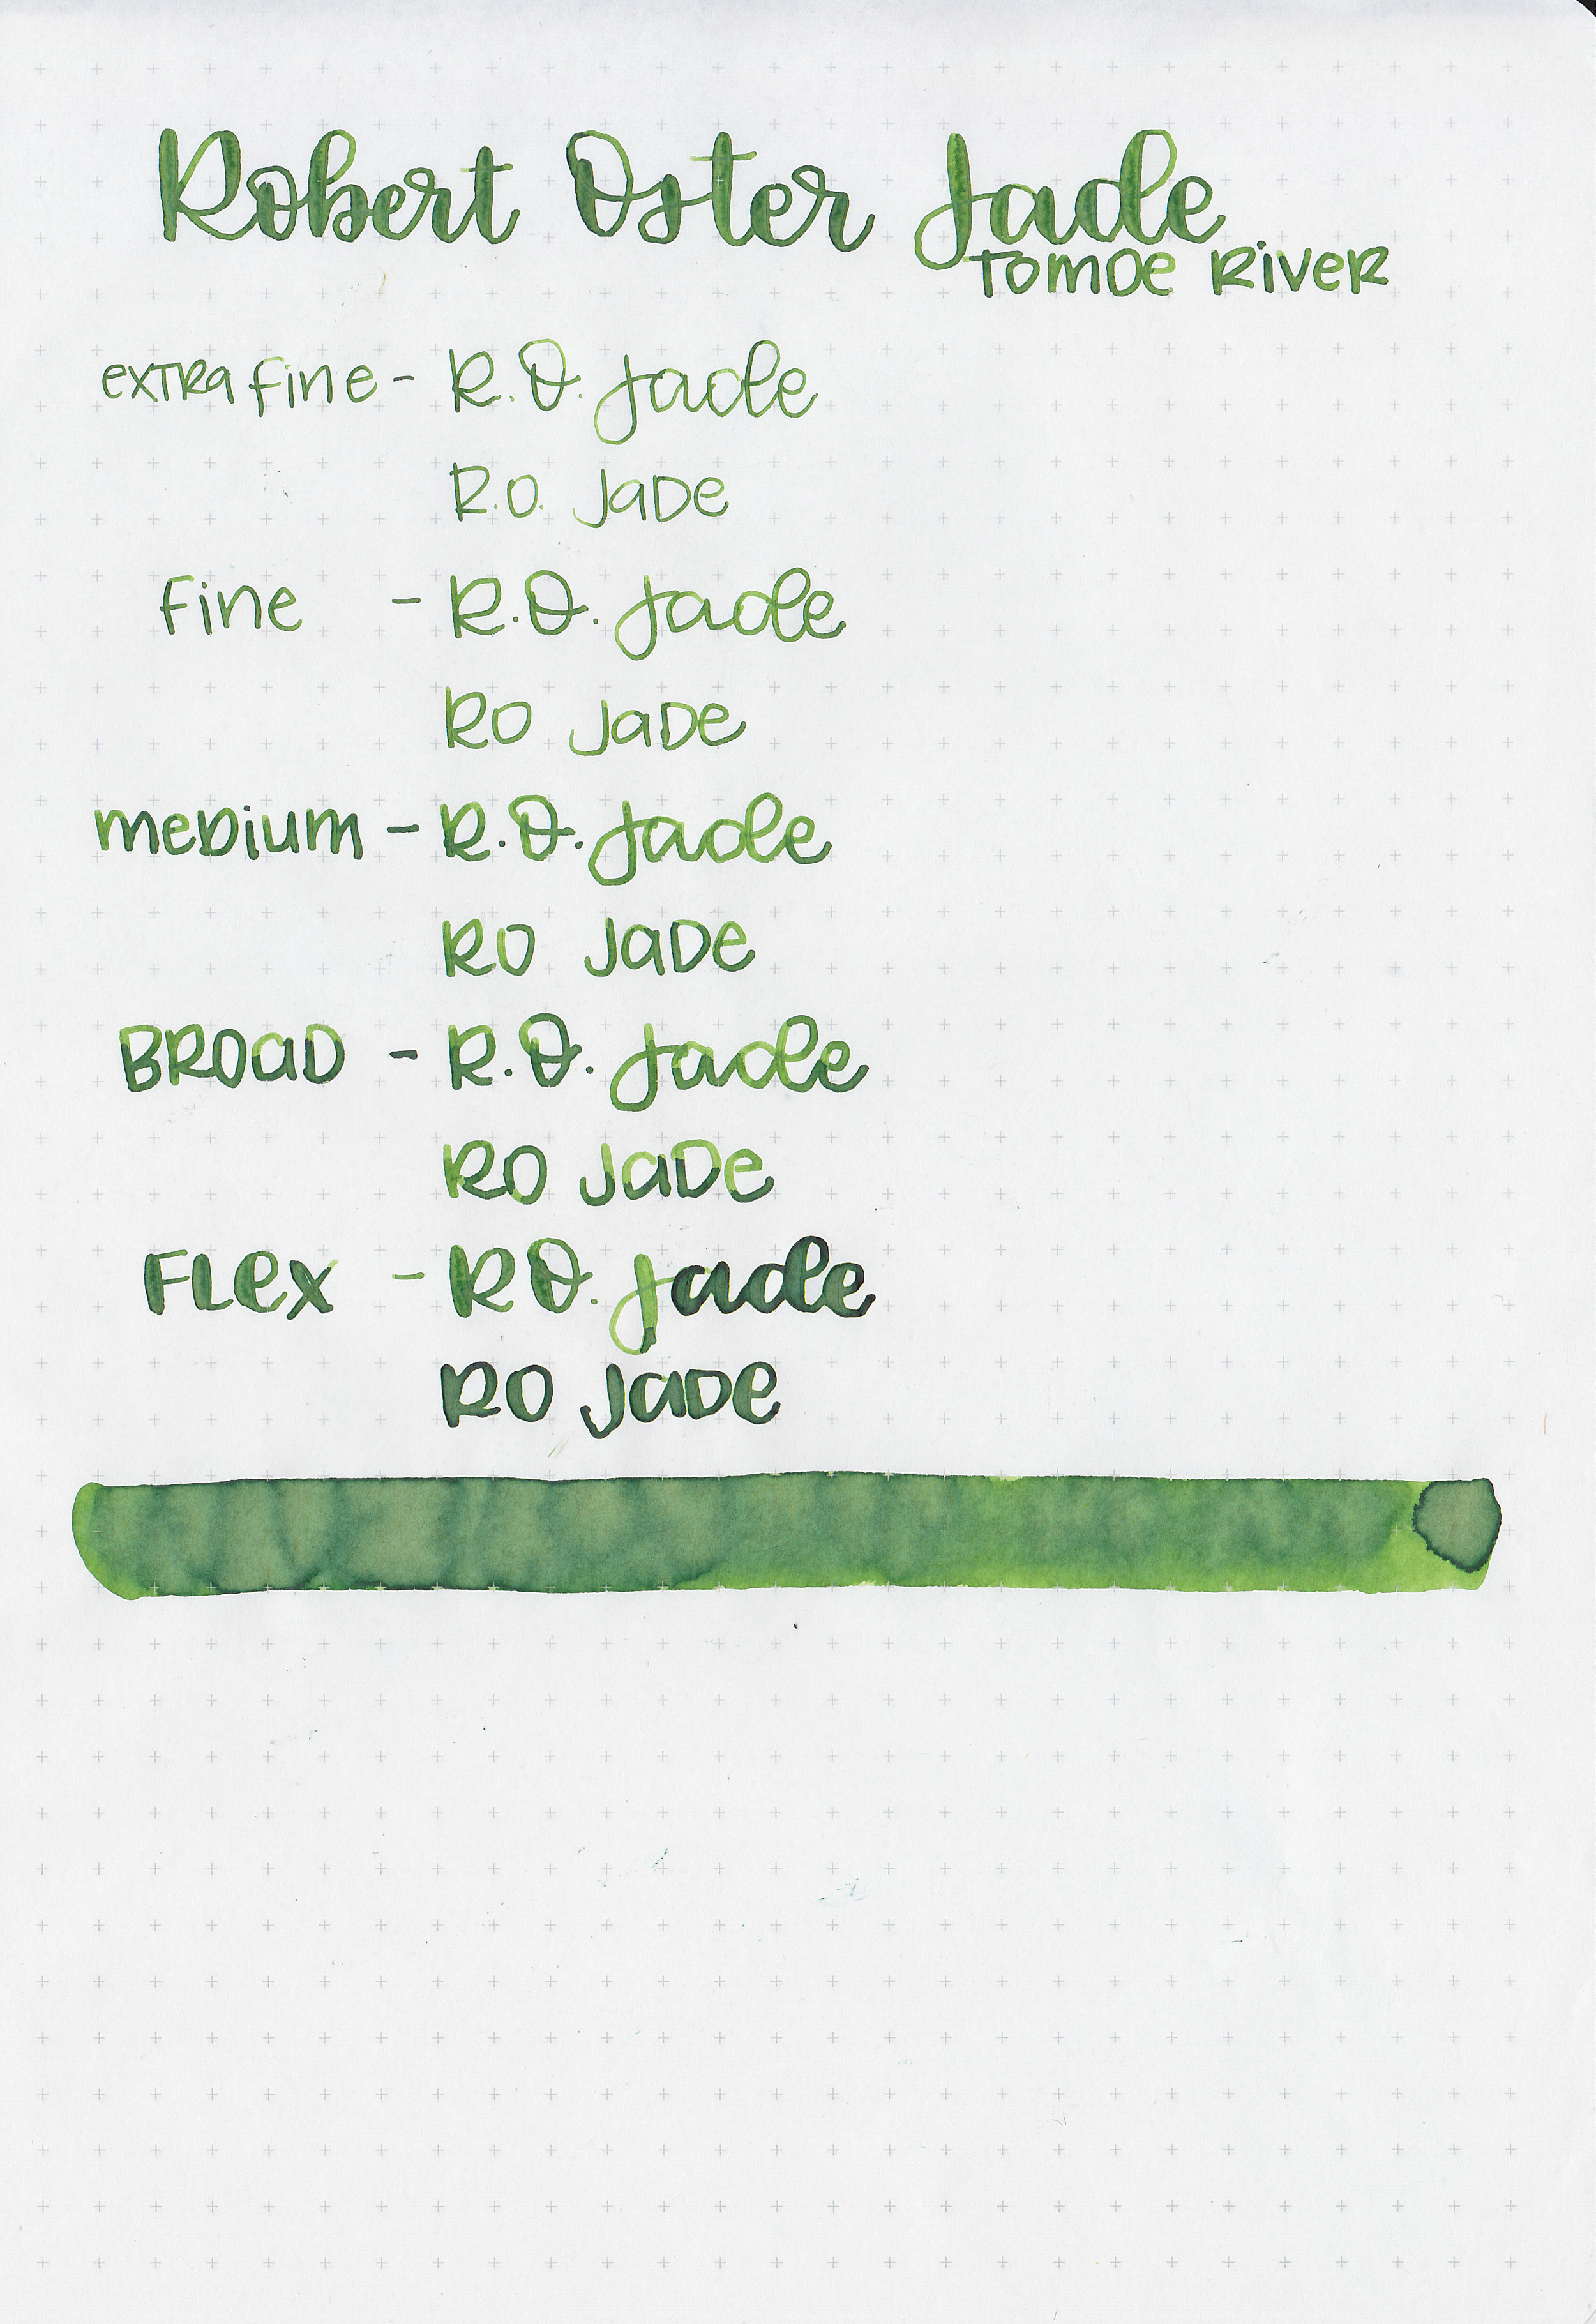 Robert Oster Jade
Tomoe River
extra fine - R.O. Jade
R.O. Jade
Fine - R.O. Jade
RO Jade
medium - R.O. Jade
RO Jade
Broad - R.O. Jade
RO Jade
Flex - RO. Jade
RO Jade